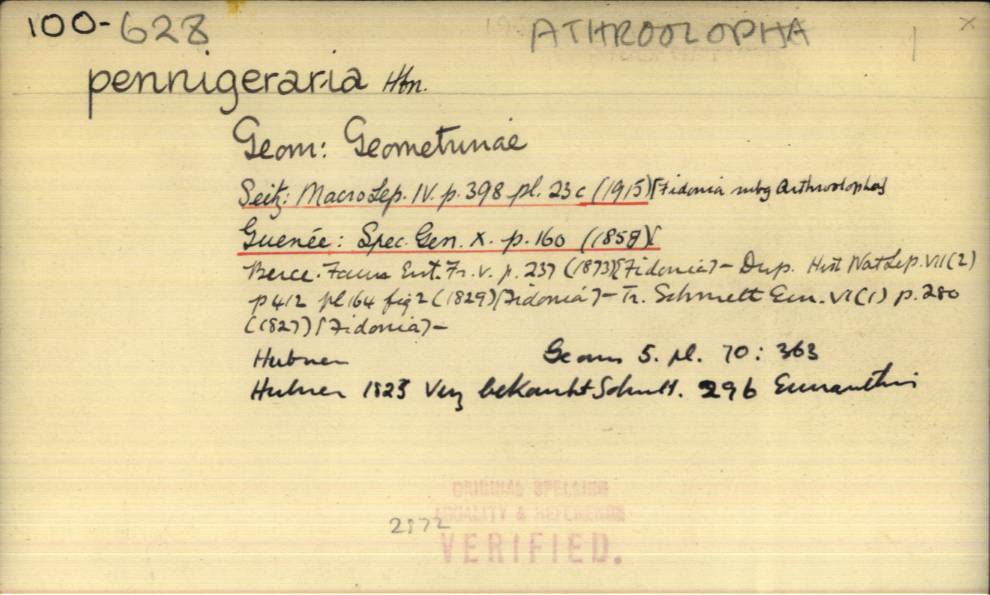 100-628 ATHROOLOPHA
pennigeraria Hbn.
Geom: Geometrinae
Seitz: MacroLep. IV. p. 398 pl. 23c (1915)[Fidonia subg Arthroolopha]
Guenée: Spec. Gen. X. p. 160 (1858)[
Berce. Faun Ent. Fr. V. p. 237 (1873)[Fidonia]- Dup. Hist Nat Lep. VII(2)
p412 pl164 fig2 (1829)[Fidonia]- Tr. Schmett Eur. VI(1) p. 280
(1827)[Fidonia]-
Hubner Geom 5. pl. 70: 363
Hubner 1823 Verz bekannt Schmett. 296 Eurranthis
ORIGINAL SPELLING
LOCALITY & REFERENCE
VERIFIED.
2872